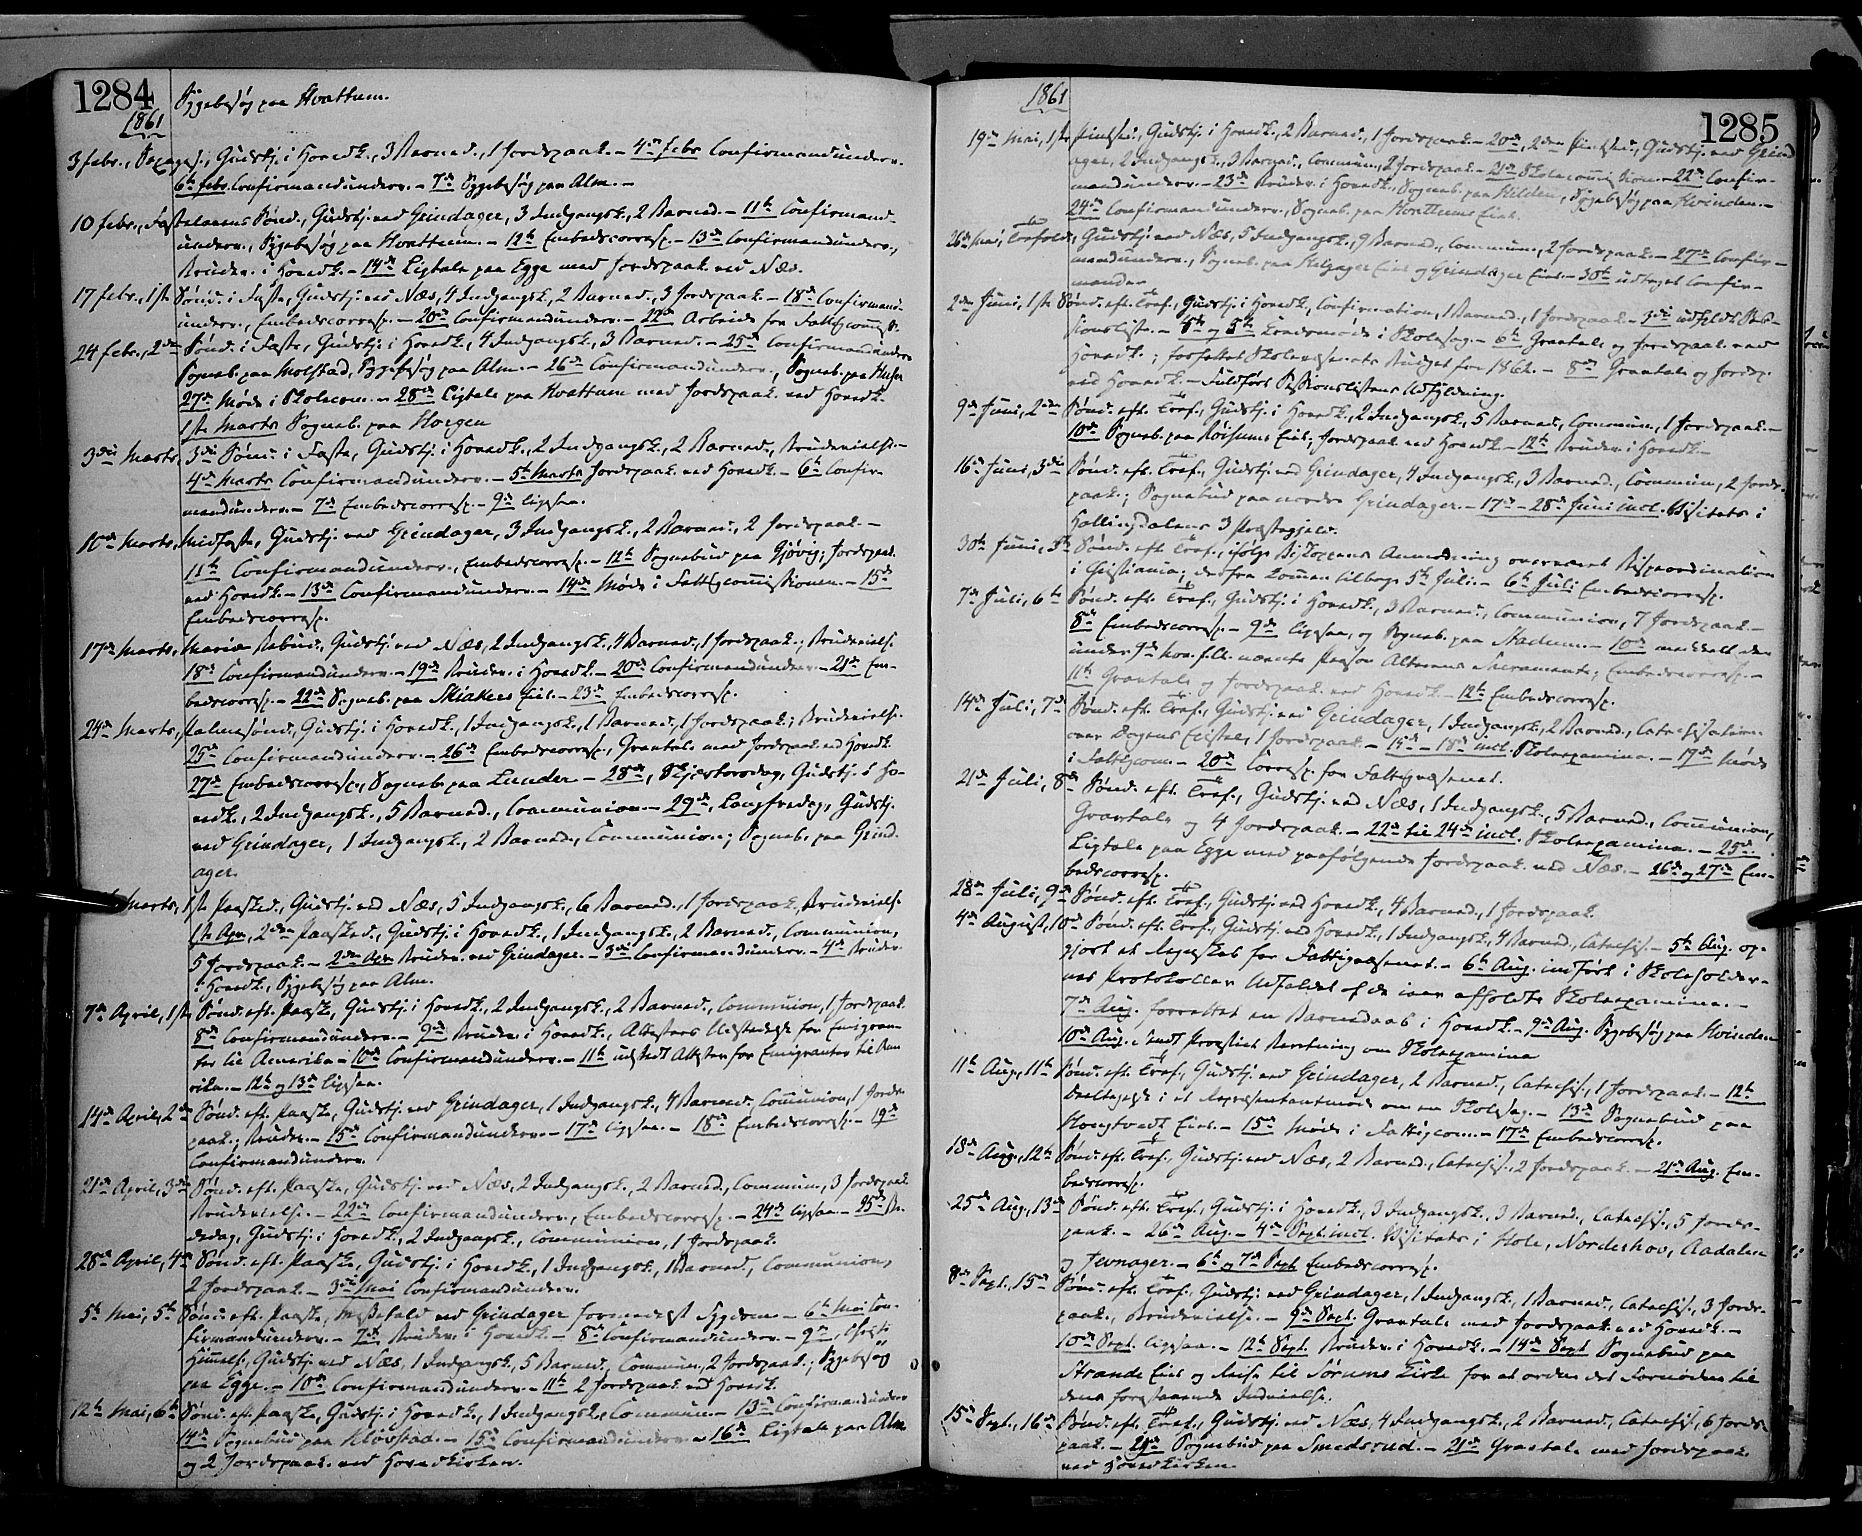 1284
1861
Sygebesøg paa Hvattum.
3 febr., Sexages., Gudstj. i Hovedk., 3 Barned., 1 Jordspaak. – 4de febr. Confirmandunderv.
6te febr. Confirmandunderv. – 7de Sygebesøg paa Alm. –
10 febr., Fastelavens Sønd., Gudstj. ved Grindager, 3 Indgangsk., 2 Barned. – 11te Confirmand-
underv., Sygebesøg paa Hvattum. – 12te Embedscorresp. – 13de Confirmandunderv.,
Brudev. i Hovedk. – 14de Ligtale paa Egge med Jordspaak. ved Næs.
17 febr., 1ste Sønd. i Faste, Gudstj. ved Næs, 4 Indgangsk., 2 Barned., 3 Jordspaak. – 18de Confirmand-
underv., Embedscorresp. – 20de Confirmandunderv. – 22de Arbeide for Fattigcomm.
24 febr., 2den Sønd. i Faste, Gudstj. i Hovedk., 4 Indgangsk., 3 Barned. – 25de Confirmandunderv.
Sogneb. paa Molstad, Sygebesøg paa Alm. – 26de Confirmandunderv., Sogneb. paa
27de Møde i Skolecom. – 28de Ligtale paa Hvattum med Jordspaak. ved Hovedk.
1ste Marts Sogneb. paa Horgen
3die Marts, 3die Sønd. i Faste, Gudstj. i Hovedk., 2 Indgangsk., 2 Barned., Brudevielse. –
4de Marts Confirmandunderv. – 5te Marts Jordspaak. ved Hovedk. – 6te Confir-
mandunderv. – 7de Embedscorresp. – 9de ligesaa.
10de Marts, Midfaste, Gudstj. ved Grindager, 3 Indgangsk., 2 Barned., 2 Jordspaak. –
11te Confirmandunderv., Embedscorresp. – 12te Sognebud paa Gjøvig; Jordspaak.
ved Hovedk. – 13de Confirmandunderv. – 14de Møde i Fattigcommissionen. – 15de
Embedscorresp.
17de Marts, Mariæ Bebud., Gudstj. ved Næs, 2 Indgangsk., 4 Barned., 1 Jordspaak., Brudevielse.
18de Confirmandunderv. – 19de Brudev. i Hovedk. – 20de Confirmandunderv. – 21de Em-
bedscorresp. – 22de Sogneb. paa Skiakers Eie. – 23de Embedscorresp.
24de Marts, Palmesønd., Gudstj. i Hovedk., 1 Indgangsk., 1 Barned., 1 Jordspaak.; Brudevielse.
25de Confirmandunderv. – 26de Embedscorresp., Gravtale med Jordspaak. ved Hovedk.
27de Embedscorresp., Sogneb. paa Lunder – 28de, Skjertorsdag, Gudstj. i Ho-
vedk., 2 Indgangsk., 5 Barned., Communion. – 29de, Langfredag, Gudstj.
ved Grindager, 1 Indgangsk., 2 Barned., Communion; Sogneb. paa Grind-
ager.
Marts, 1ste Paasked., Gudstj. ved Næs, 5 Indgangsk., 6 Barned., 1 Jordspaak., Brudevielse.
1ste Apr., 2den Paasked., Gudstj. i Hovedk., 1 Indgangsk., 2 Barned., Communion,
5 Jordspaak. – 2den Apr. Brudev. ved Grindager. – 3die Confirmandunderv. – 4de Brudev.
i Hovedk., Sygebesøg paa Alm.
7de April, 1ste Sønd. eft. Paaske, Gudstj. i Hovedk., 2 Indgangsk., 2 Barned., Communion, 1 Jordspaak.
8de Confirmandunderv. – 9de Brudev. i Hovedk., Attesters Udstedelse for Emigran-
ter til Amerika – 10de Confirmandunderv. – 11te udstedt Attester for Emigranter til Ame-
rika. – 12te og 13de ligesaa.
14de April, 2den Sønd. eft. Paaske, Gudstj. ved Grindager, 1 Indgangsk., 4 Barned., Communion, 1 Jords-
paak.; Brudev. – 15de Confirmandunderv. – 17de ligesaa. – 18de Embedscorresp. – 19de
Confirmandunderv.
21de April, 3die Sønd. eft. Paaske, Gudstj. ved Næs, 2 Indgangsk., 2 Barned., Commun., 3 Jordspaak.
Brudevielse. – 22de Confirmandunderv., Embedscorresp. – 24de ligesaa – 25de Be-
dedag, Gudstj. i Hovedk., 2 Indgangsk., Communion, 1 Jordspaak.
28de April, 4de Sønd. eft. Paaske, Gudstj. i Hovedk., 1 Indgangsk., 1 Barned., Communion,
2 Jordspaak. – 3die Mai Confirmandunderv.
5te Mai, 5te Sønd. eft. Paaske, Messefald ved Grindager formedelst Sygdom – 6te Mai Con-
firmandunderv. – 7de Brudev. i Hovedk. – 8de Confirmandunderv. – 9de, Christi
Himmelf., Gudstj. ved Næs, 1 Indgangsk., 5 Barned., Commun., 2 Jordspaak.; Sygebesøg
paa Egge. – 10de Confirmandunderv. – 11te 2 Jordspaak. ved Hovedk.
12te Mai, 6te Sønd. eft. Paaske, Gudstj. i Hovedk., 1 Indgangsk., Commun. – 13de Confirmandunderv.
14de Sognebud paa Kløvstad. – 15de Confirmandunderv. – 16de Ligtale paa Alm
og 2 Jordspaak. ved Hovedkirken.
1861
1285
19de Mai, 1ste Pintsed., Gudstj. i Hovedk., 2 Barned., 1 Jordspaak. – 20de, 2den Pintsed., Gudstj. ved Grind-
ager, 2 Indgangsk., 3 Barned., Commun., 2 Jordspaak. – 21de Skolecommission. – 22de Confir-
mandunderv. – 23de Brudev. i Hovedk., Sogneb. paa Hilden, Sygebesøg paa Kvinden. –
24de Confirmandunderv., Sogneb. paa Hvattums Eie.
26de Mai, Trefoldh., Gudstj. ved Næs, 5 Indgangsk., 9 Barned., Commun., 2 Jordspaak. – 27de Confir-
mandunderv., Sogneb. paa Eie og Grindager Eie. – 30te udtaget Confir-
mander
2den Juni, 1ste Sønd. eft. Tref., Gudstj. i Hovedk., Confirmation, 1 Barned., 1 Jordspaak. – 3die udfyldt Ses-
sionsliste. – 4de og 5te Landemøde i Skolesag. – 6te Gravtale og Jordspaak. ved
Hovedk.; forfattet Skolevæsenets Budget for 1862. – 8de Gravtale og Jordsp.
ved Hovedk. – Fuldført Sessionslistens Udfyldning.
9de Juni, 2den Sønd. eft. Tref., Gudstj. i Hovedk., 2 Indgangsk., 5 Barned., Commun., 1 Jordspaak. –
10de Sogneb. paa Røisums Eie; Jordspaak. ved Hovedk. – 12te Brudev. i Hovedk. –
16de Juni, 3die Sønd. eft. Tref., Gudstj. ved Grindager, 4 Indgangsk., 3 Barned., Commun., 2 Jords-
paak.; Sognebud paa nordre Grindager. – 17de – 28de Juni incl. Visitats i
Hallingdalens 3 Præstegjæld.
30te Juni, 5te Sønd. eft. Tref., ifølge Bispens Anmodning overværet Bispeordination
i Christiania; derfra kommen tilbage 5te Juli. – 6te Juli Embedscorresp.
7de Juli, 6te Sønd. eft. Tref., Gudstj. i Hovedk., 3 Barned., Communion, 7 Jordspaak. –
8de Embedscorresp. – 9de ligesaa, og Sogneb. paa Aadum. – 10de meddelt den
under 9de nævnte Person Alterens Sacramente; Embedscorresp. –
11te Gravtale og Jordspaak. ved Hovedk. – 12te Embedscorresp.
14de Juli, 7de Sønd. eft. Tref., Gudstj. ved Grindager, 1 Indgangsk., 2 Barned., Catechisation
over Dagens Epistel, 1 Jordspaak. – 15de – 18de incl. Skoleexamina. – 19de Møde
i Fattigcom. – 20de Corresp. for Fattigvæsenet.
21de Juli, 8de Sønd. eft. Tref., Gudstj. ved Næs, 1 Indgangsk., 5 Barned., Communion,
Gravtale og 4 Jordspaak. – 22de til 24de incl. Skoleexamina. – 25de
Ligtale paa Egge med paafølgende Jordspaak. ved Næs. – 26de og 27de Em-
bedscorresp.
28de Juli, 9de Sønd. eft. Tref., Gudstj. ved Hovedk., 4 Barned., 1 Jordspaak.
4de August, 10de Sønd. eft. Tref., Gudstj. ved Hovedk., 1 Indgangsk., 4 Barned., Catechis. – 5te Aug. op-
gjort et Regnskab for Fattigvæsenet. – 6te Aug. indført i Skoleholder-
nes Protokoller Udfaldet af de iaar afholdte Skoleexamina. –
7de Aug. forrettet en Barnedaab i Hovedk. – 9de Aug. Sygebesøg paa Kvinden
10de Aug. sendt Provstiet Beretning om Skoleexamina
11te Aug., 11te Sønd. eft. Tref., Gudstj. ved Grindager, 2 Barned., Catechis., 1 Jordspaak. – 12te
deeltaget i et Repræsentantmøde om en Skolesag. – 13de Sognebud paa
Haugtvedt Eie. – 15de Møde i Fattigcom. – 17de Embedscorresp.
18de Aug., 12te Sønd. eft. Tref., Gudstj. ved Næs, 2 Barned., Catechis., 2 Jordspaak. – 21de Aug. Em-
bedscorresp.
25de Aug., 13de Sønd. eft. Tref., Gudstj. i Hovedk., 3 Indgangsk., 3 Barned., Catechis., 5 Jords-
paak. – 26de Aug. – 4de Sept. incl. Visitats i Hole, Norderhov, Aadalen
og Jevnager. – 6te og 7de Sept. Embedscorresp.
8de Sept., 15de Sønd. eft. Tref., Gudstj. ved Grindager, 1 Indgangsk., 1 Barned., Catechis., 3 Jords-
paak., Brudevielse. – 9de Sept. Gravtale med Jordspaak. ved Hovedk. –
10de Sept. ligesaa. – 12te Sept. Brudev. i Hovedk. – 14de Sept. Sognebud paa
Strande Eie og Reise til Sørums Kirke for at ordne det Fornødne til
dens forestaaende Indvielse.
15de Sept., 16de Sønd. eft. Tref., Gudstj. ved Næs, 4 Indgangsk., 2 Barned., Catechis., 6 Jords-
paak. – Sognebud paa Smedsrud. – 21de Gravtale med Jordspaak.
ved Hovedkirken.